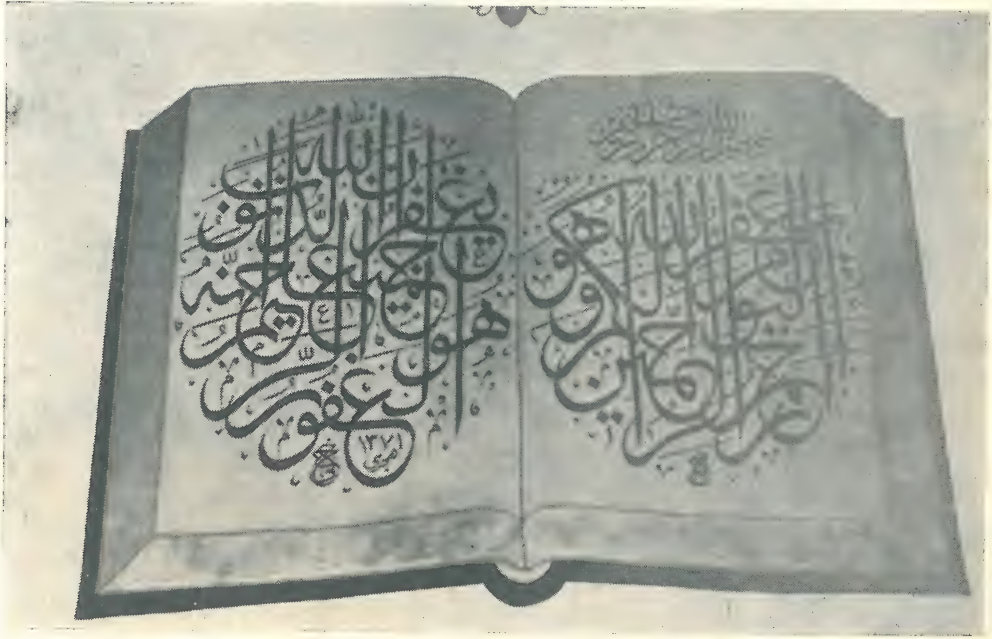 بسم الله الرحمن الرحيم
اليوم يغفر الله لكم وهو أرحم الراحمين
إن الله يغفر الذنوب جميعا إنه
هو الغفور الرحيم
١٣٧١